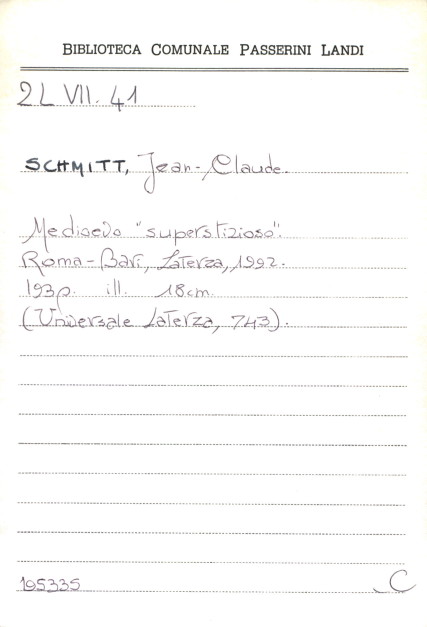 BIBLIOTECA COMUNALE PASSERINI LANDI
2L VII. 41
SCHMITT, Jean-Claude.
Medioevo "superstizioso".
Roma-Bari, Laterza, 1992.
193p. ill. 18cm.
(Universale Laterza, 743).
195335 C